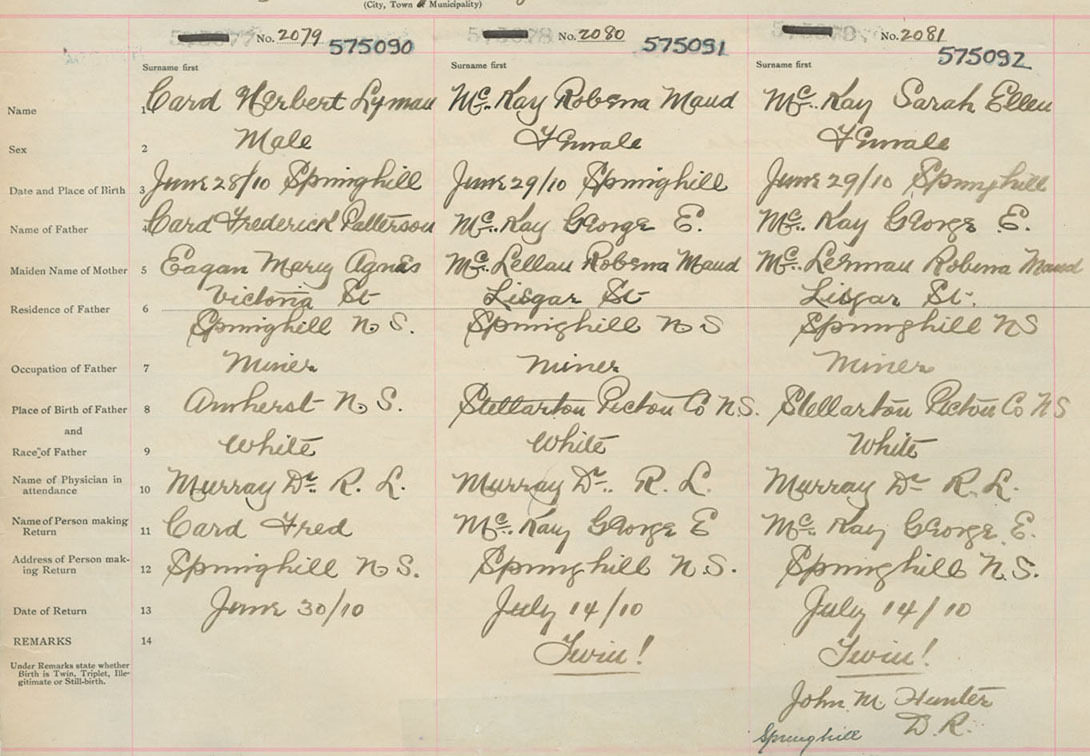 (City, Town or Municipality)
No. 2079 575090 No. 2080 575091 No. 2081 575092
Surname first Surname first Surname first
Name 1 Card Herbert Lyman Mc. Kay Robena Maud Mc. Kay Sarah Ellen
Sex 2 Male Female Female
Date and Place of Birth 3 June 28/10 Springhill June 29/10 Springhill June 29/10 Springhill
Name of Father Card Frederick Patterson Mc. Kay George E. Mc. Kay George E.
Maiden Name of Mother 5 Eagan Mary Agnes Mc. Lellan Robena Maud Mc. Robena Maud
Victoria St Lisgar St Lisgar St.
Residence of Father 6
Springhill N. S. Springhill N S Springhill NS
Occupation of Father 7 Miner Miner Miner
Place of Birth of Father 8 Amherst N. S. Stellarton Pictou Co N.S. Stellarton Pictou Co N S
and
Race of Father 9 White White White
Name of Physician in
attendance 10 Murray Dr. R. L. Murray Dr. R. L. Murray Dr. R. L.
Name of Person making
Return 11 Card Fred Mc. Kay George E Mc. Kay George E.
Address of Person mak-
ing Return 12 Springhill N. S. Springhill N. S. Springhill N. S.
Date of Return 13 June 30/10 July 14/10 July 14/10
REMARKS 14 Twin! Twin!
Under Remarks state whether
Birth is Twin, Triplet, Ille-
gitimate or Still-birth.
John M. Hunter
D. R.
Springhill